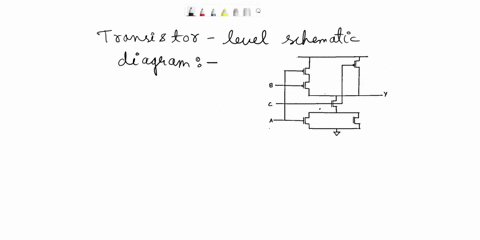 Transistor - level schematic
diagram :-
B
C
Y
A